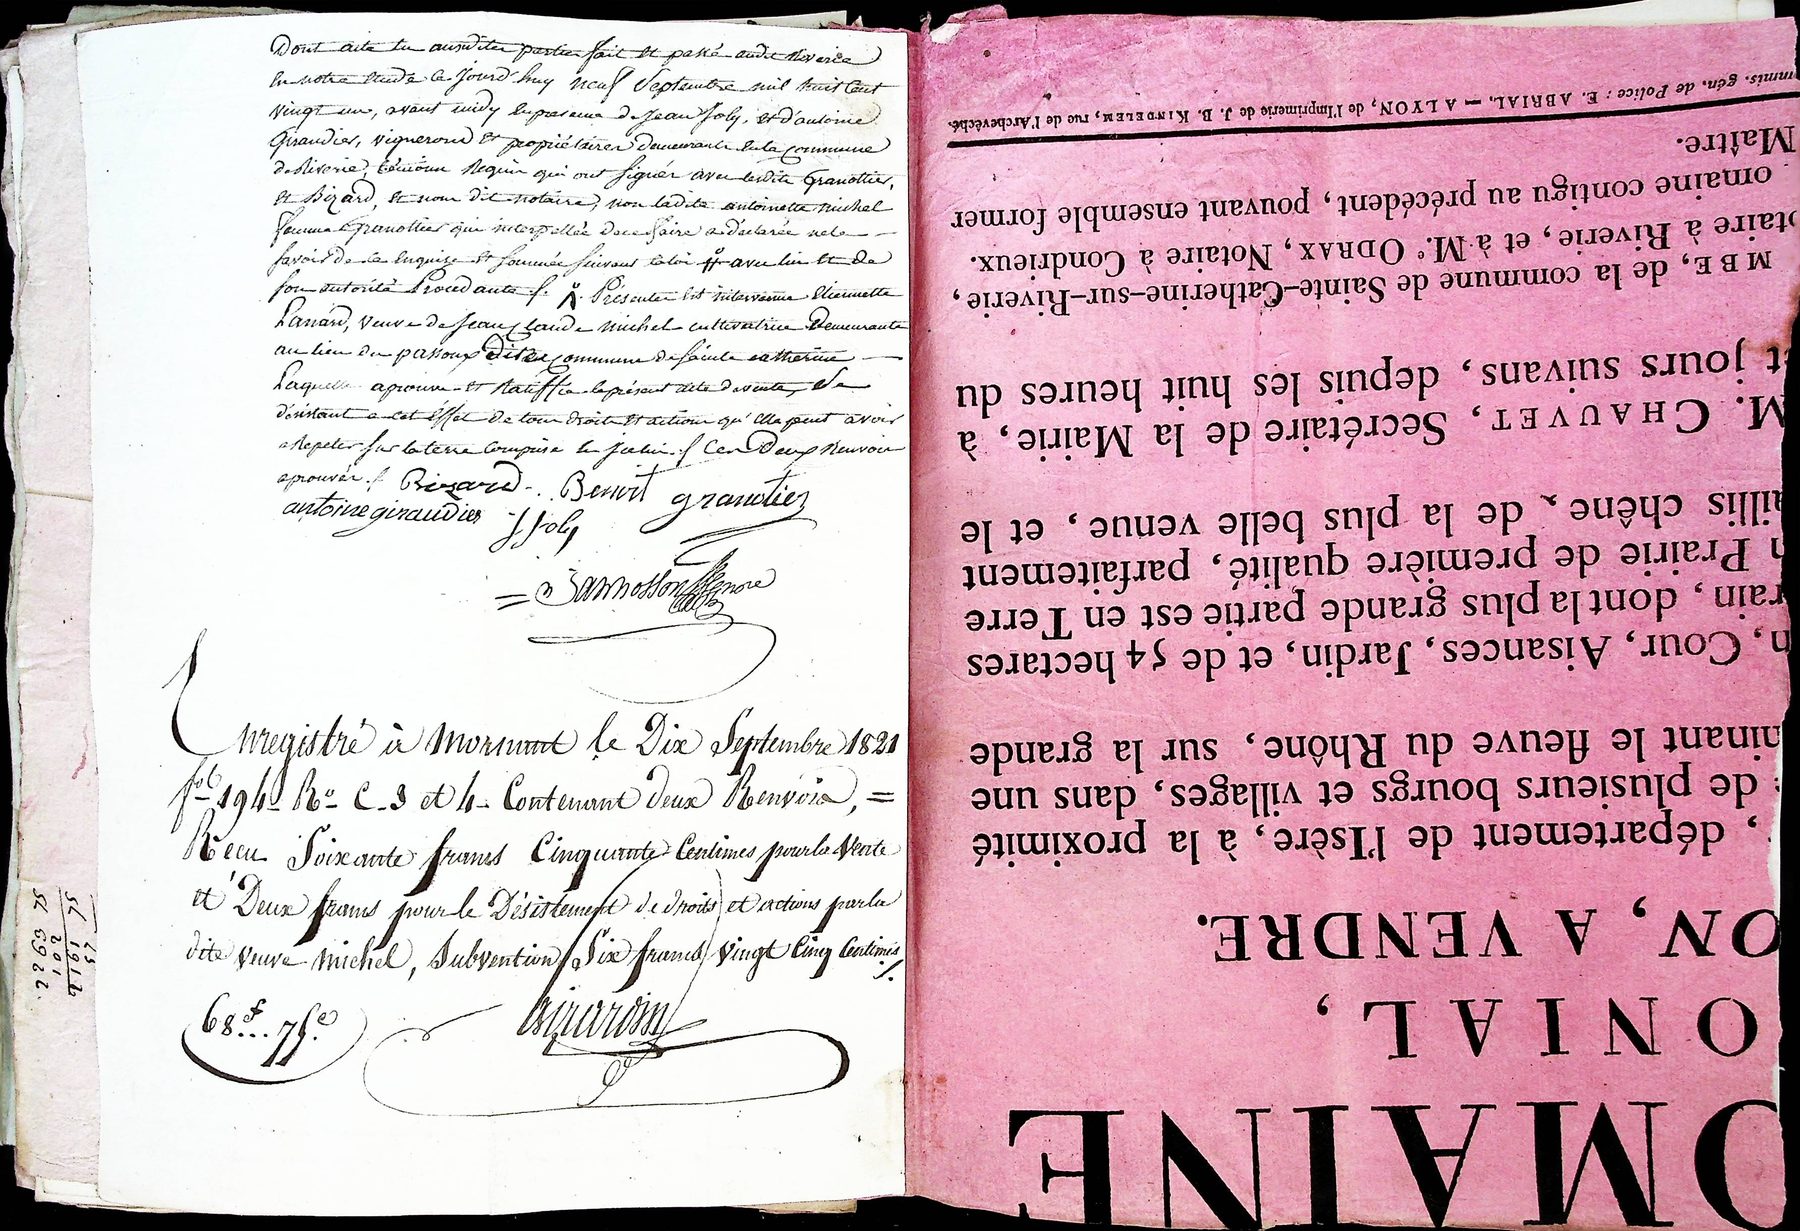 Dont acte lu auxdites parties fait et passé audit Riverie
en notre étude ce jourd'huy neuf Septembre mil huit cent
vingt un, avant midy en présence de Jean Joly, et d'antoine
Giraudier, vignerons et propriétaires demeurants en la commune
de Riverie, témoins requis qui ont signés avec lesdits Granottier,
et Bizard, et nous dit notaire, non ladite antoinette michel
femme Granottier qui interpellée de ce faire a déclarée ne le
savoir de ce enquise et sommée suivant la loi # avec lui et de
son autorité Procédante /. Présente est intervenue etiennette
veuve de Jean Claude michel cultivatrice Demeurante
au lieu du passoux dite commune de sainte catherine
Laquelle aprouve et Ratiffie le présent acte de vente, Se
désistant a cet éffet de tous droits et actions qu'elle peut avoir
a Repeter sur la terre comprise en icelui / Ces Deux Renvois
aprouvés /. Bizard Benoit granotier
antoine giraudier J Joly
Enregistré à Mornant le Dix Septembre 1821
fol 194 Ro C. 3 et 4 Contenant deux Renvois, =
Recu Soixante francs Cinquante Centimes pour la Vente
et Deux francs pour le Désistement de droits et actions par la
dite veuve Michel, Subvention Six francs Vingt Cinq Centimes ./.
68f...75c.
Girardin
OMAINE
ONIAL,
ON, A VENDRE.
, département de l'Isère, à la proximité
de plusieurs bourgs et villages, dans une
minant le fleuve du Rhône, sur la grande
n, Cour, Aisances, Jardin, et de 54 hectares
rain, dont la plus grande partie est en Terre
n Prairie de première qualité, parfaitement
aillis chêne, de la plus belle venue, et le
M. CHAUVET, Secrétaire de la Mairie, à
et jours suivans, depuis les huit heures du
MBE, de la commune de Sainte-Catherine-sur-Riverie,
otaire à Riverie, et à M.e ODRAX, Notaire à Condrieux.
omaine contigu au précédent, pouvant ensemble former
Maître.
mmis. gén. de Police : E. ABRIAL. — A LYON, de l'Imprimerie de J. B. KINDELEM, rue de l'Archevêché.